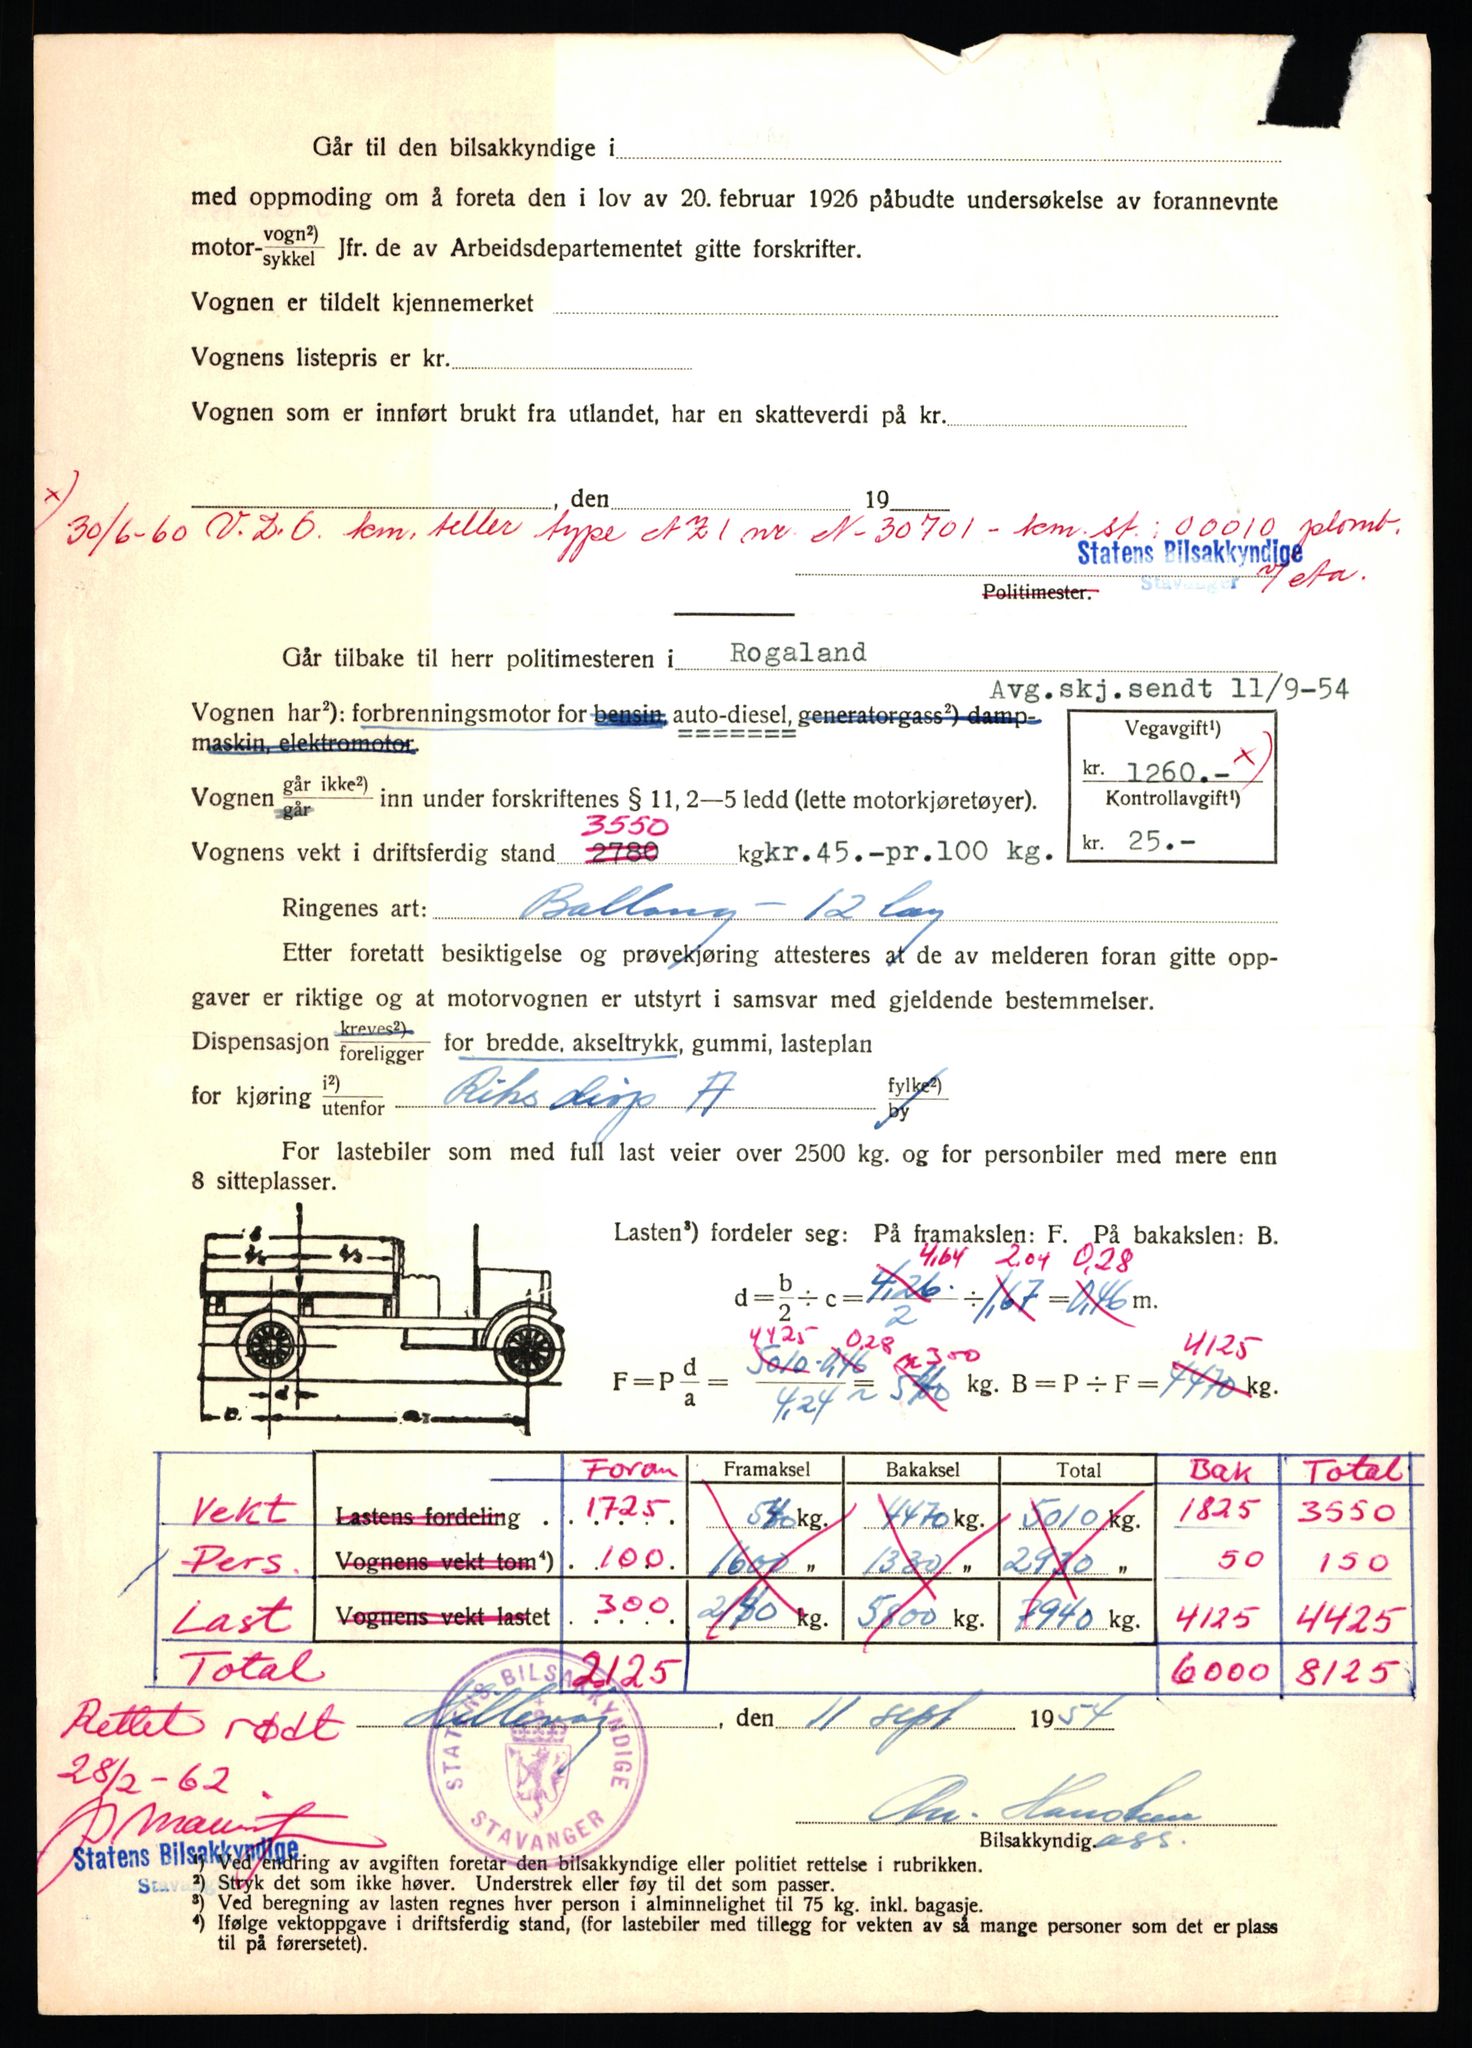 Går til den bilsakkyndige i
med oppmoding om å foreta den i lov av 20. februar 1926 påbudte undersøkelse av forannevnte
motor- vogn²) / sykkel Jfr. de av Arbeidsdepartementet gitte forskrifter.
Vognen er tildelt kjennemerket
Vognens listepris er kr.
Vognen som er innført brukt fra utlandet, har en skatteverdi på kr.
, den 19
x) 30/6-60 V.D.O. km. teller type NZ1 nr. N-30701 - km. st.: 00010 plomb.
Statens Bilsakkyndige
Stavanger
Politimester.
Går tilbake til herr politimesteren i Rogaland
Avg.skj.sendt 11/9-54
Vognen har²): forbrenningsmotor for bensin, auto-diesel, generatorgass²) damp-
maskin, elektromotor.
Vegavgift¹)
kr. 1260.- x)
Vognen går ikke²) / går inn under forskriftenes § 11, 2—5 ledd (lette motorkjøretøyer).
Kontrollavgift¹)
kr. 25.-
3550
Vognens vekt i driftsferdig stand 2780 kg kr.45.-pr.100 kg.
Ringenes art: Ballong - 12 lag
Etter foretatt besiktigelse og prøvekjøring attesteres at de av melderen foran gitte opp-
gaver er riktige og at motorvognen er utstyrt i samsvar med gjeldende bestemmelser.
Dispensasjon kreves²) / foreligger for bredde, akseltrykk, gummi, lasteplan
for kjøring i²) / utenfor Riksdisp A fylke²) / by
For lastebiler som med full last veier over 2500 kg. og for personbiler med mere enn
8 sitteplasser.
Lasten³) fordeler seg: På framakslen: F. På bakakslen: B.
4,64 2,04 0,28
d = b/2 ÷ c = 4,26/2 ÷ 1,67 = 0,46 m.
4425 0,28 ~300 4125
F = P d/a = 5010 · 0,46 / 4,24 = ~ 540 kg. B = P ÷ F = 4470 kg.
Foran Framaksel Bakaksel Total Bak Total
Vekt Lastens fordeling 1725 540 kg. 4470 kg. 5010 kg. 1825 3550
Pers. Vognens vekt tom⁴) 100 1600 „ 1330 „ 2930 „ 50 150
Last Vognens vekt lastet 300 2140 kg. 5800 kg. 7940 kg. 4125 4425
Total 2125 6000 8125
Rettet rødt Hillevåg, den 11 sept 1954
28/2-62
STATENS BILSAKKYNDIGE STAVANGER
Bilsakkyndig ass.
Statens Bilsakkyndige
¹) Ved endring av avgiften foretar den bilsakkyndige eller politiet rettelse i rubrikken.
²) Stryk det som ikke høver. Understrek eller føy til det som passer.
³) Ved beregning av lasten regnes hver person i alminnelighet til 75 kg. inkl. bagasje.
⁴) Ifølge vektoppgave i driftsferdig stand, (for lastebiler med tillegg for vekten av så mange personer som det er plass
til på førersetet).